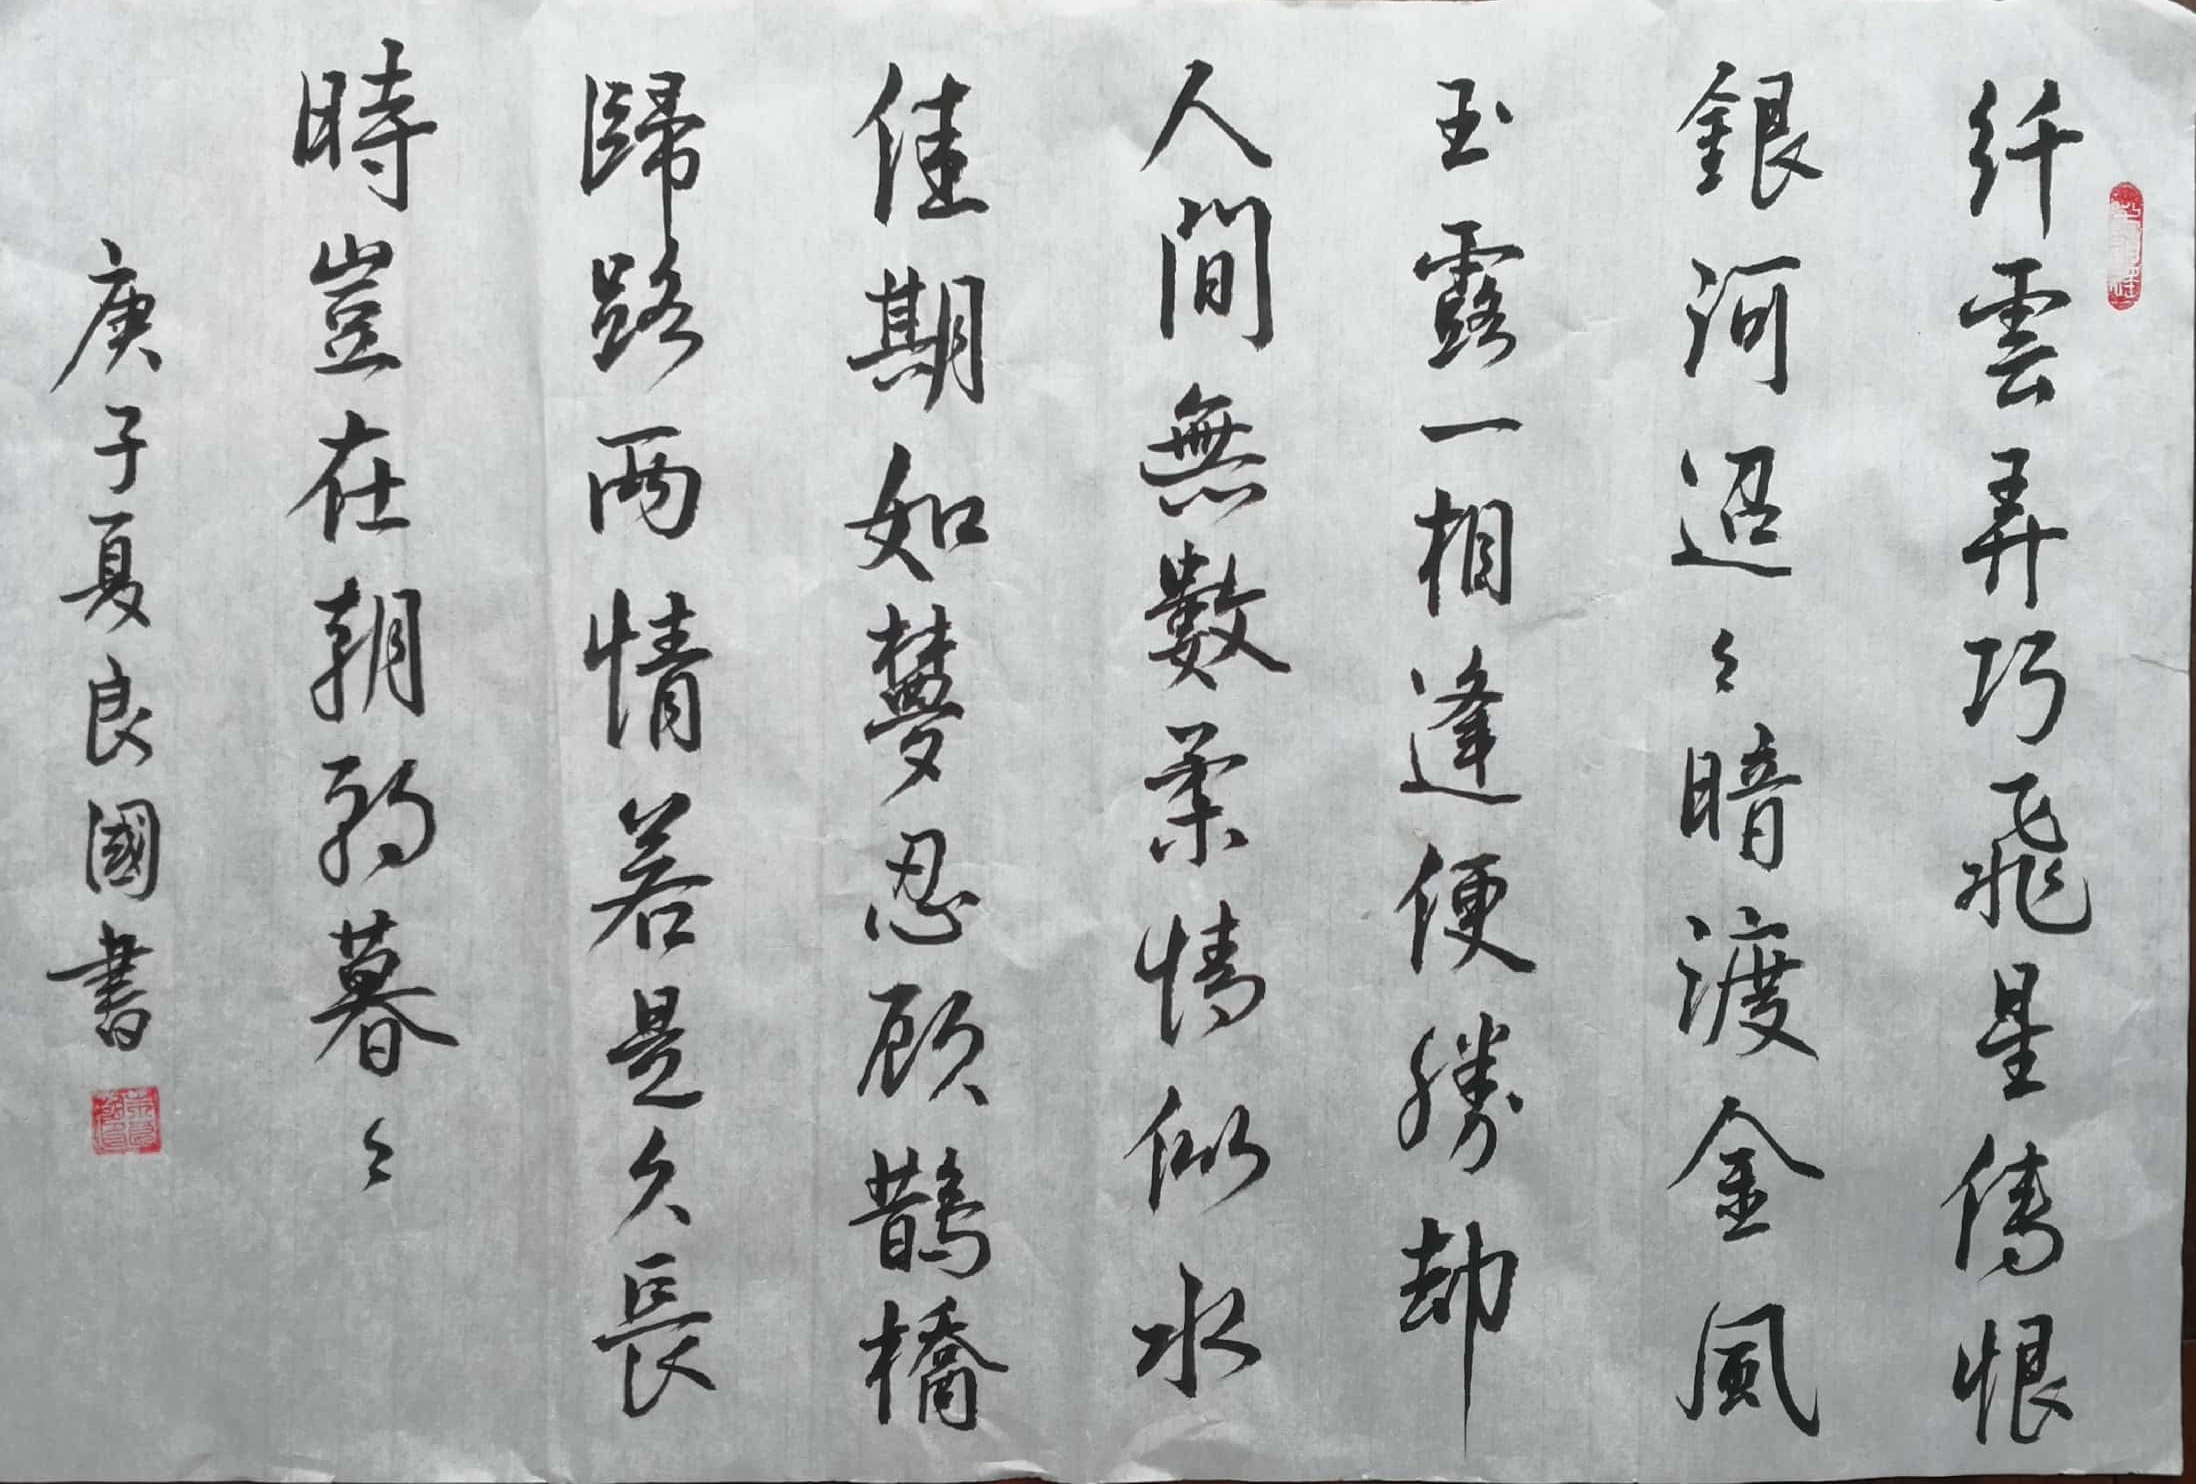 纤雲弄巧飛星傳恨
銀河迢々暗渡金風
玉露一相逢便勝却
人間無數柔情似水
佳期如夢忍顧鵲橋
歸路兩情若是久長
時豈在朝朝暮々
庚子夏良國書